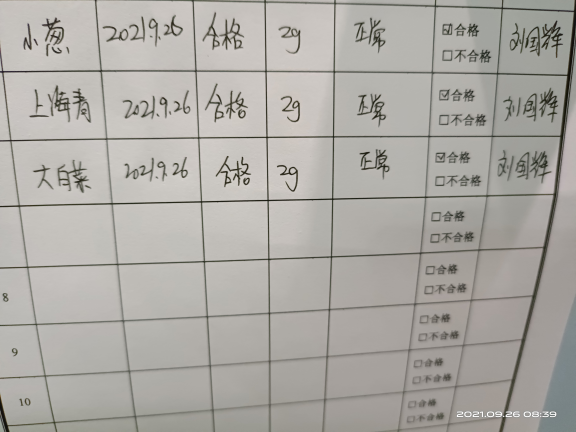 小葱 2021.9.26 合格 2g 正常 ☑合格 刘国辉
□不合格
上海青 2021.9.26 合格 2g 正常 ☑合格 刘国辉
□不合格
大白菜 2021.9.26 合格 2g 正常 ☑合格 刘国辉
□不合格
□合格
□不合格
8 □合格
□不合格
9 □合格
□不合格
□合格
10 □不合格
□合格
□不合格
2021.09.26 08:39